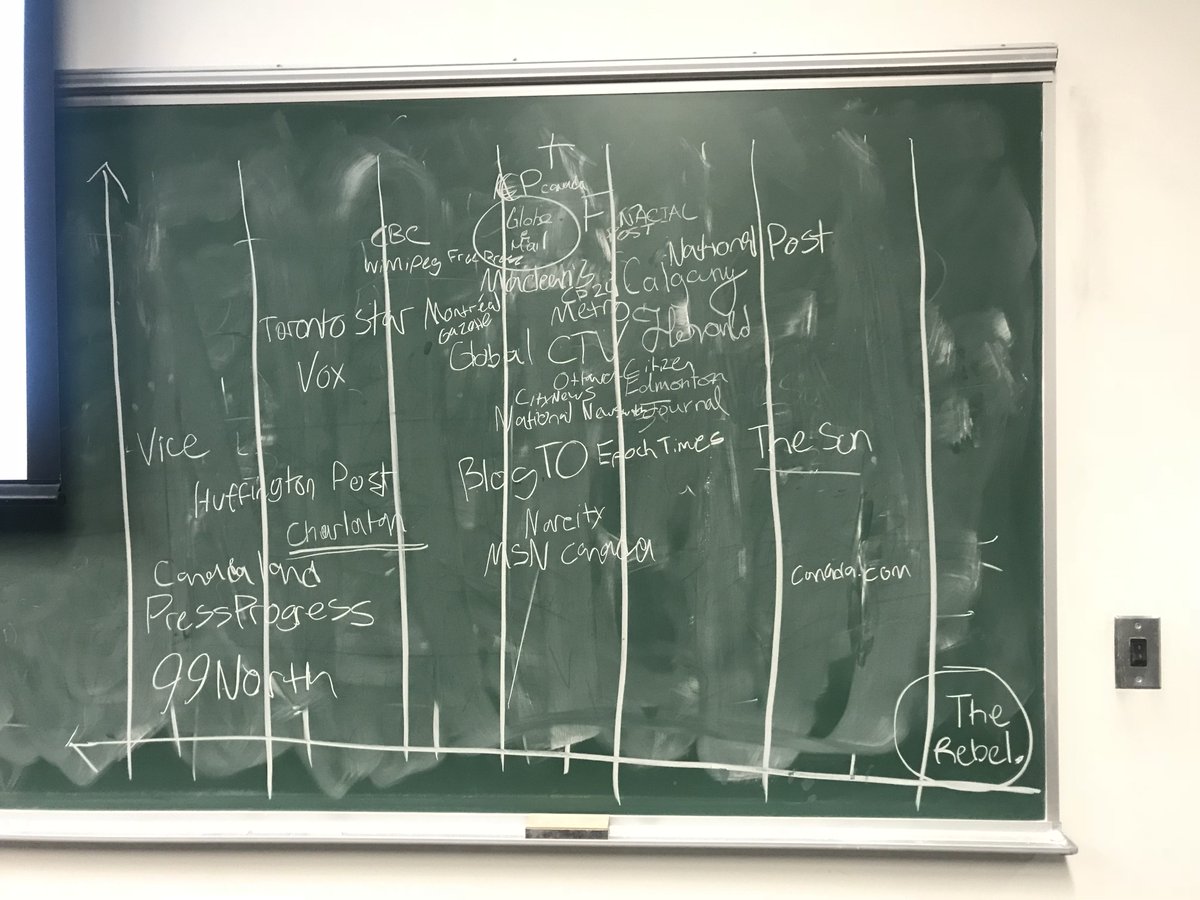 CP canada
Globe
&
Mail
CBC
FINACIAL
POST
National Post
Winnipeg Free Press
Maclean's
Calgary
Herald
Toronto Star
Montréal
Gazette
CP24
Metro
Global
CTV
Vox
Ottawa Citzen
CityNews
Edmonton
Journal
National Newswatch
Vice
Blog TO
Epoch Times
The Sun
Huffington Post
Charlaton
Narcity
MSN Canada
Canadaland
Canada.com
PressProgress
99North
The
Rebel.